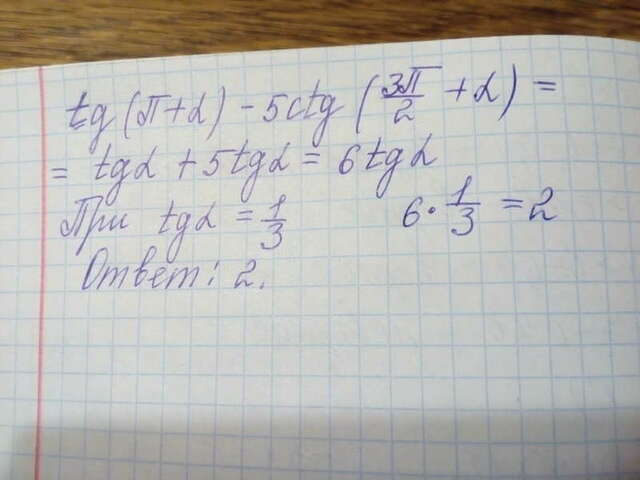 tg(π+α) - 5ctg(3π/2 + α) =
= tgα + 5tgα = 6tgα
При tgα = 1/3 6·1/3 = 2
Ответ: 2.